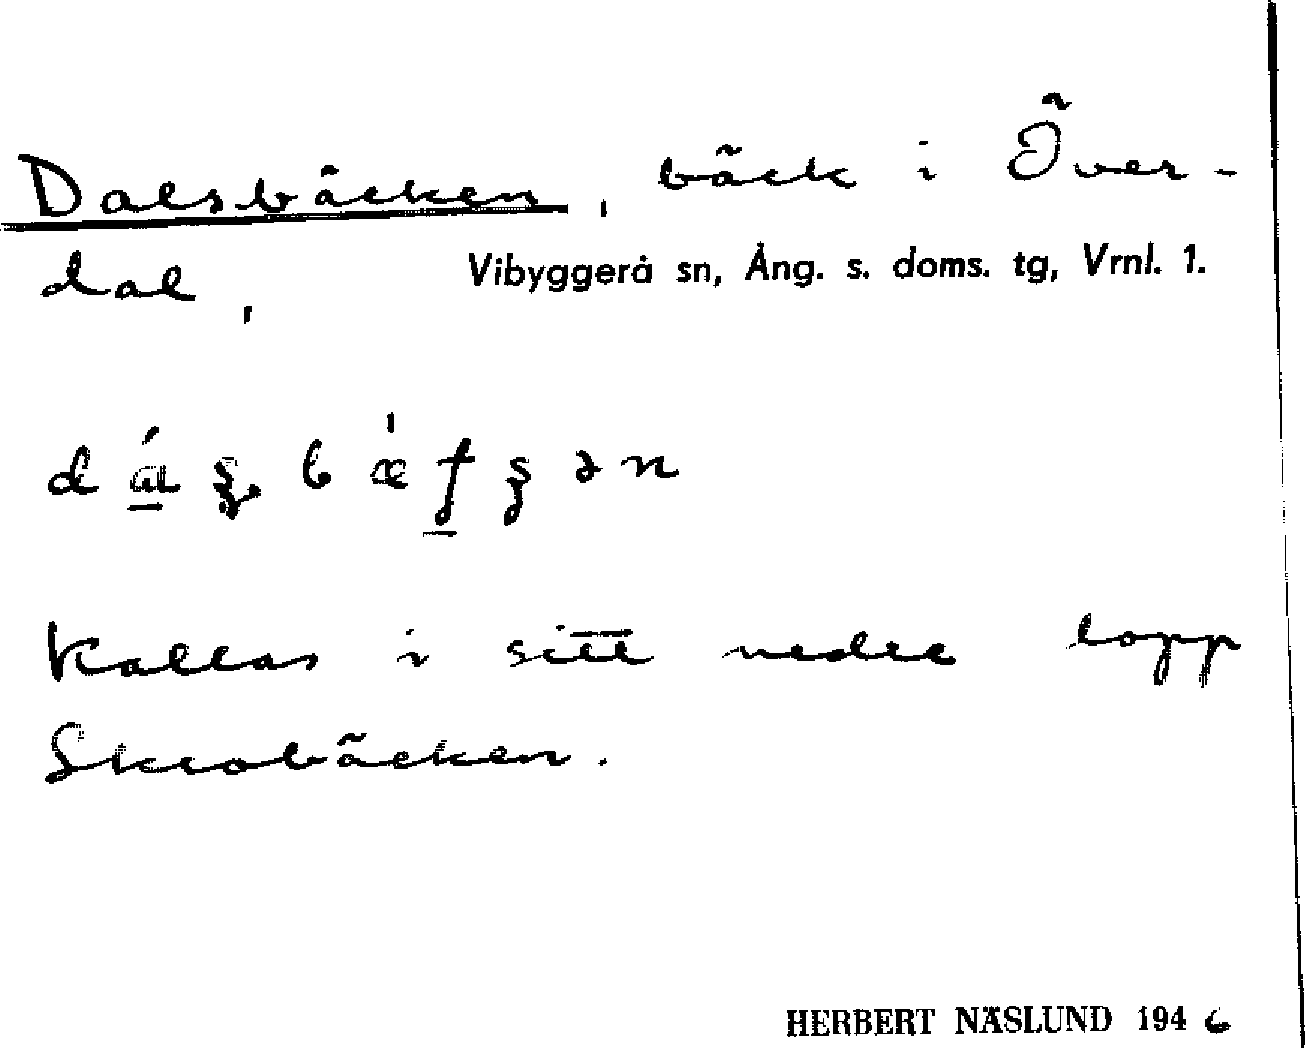 Dalsbäcken, bäck i Över-
dal, Vibyggerå sn, Ång. s. doms. tg, Vrnl. 1.
Kallas i sitt nedre lopp
Skrobäcken.
HERBERT NÄSLUND 1946